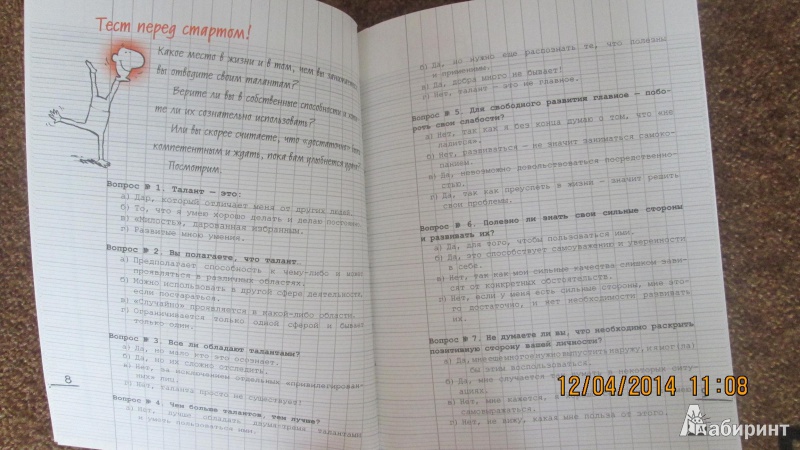 Тест перед стартом!
Какое место в жизни и в том, чем вы занимаетесь,
вы отводите своим талантам?
Верите ли вы в собственные способности и
те ли их сознательно использовать?
Или вы скорее считаете, что «достаточно» быть
компетентным и ждать, пока вам улыбнется удача?
Посмотрим.
Вопрос № 1. Талант — это:
а) Дар, который отличает меня от других людей.
б) То, что я умею хорошо делать и делаю постоянно.
в) «Милость», дарованная избранным.
г) Развитые мною умения.
Вопрос № 2. Вы полагаете, что талант
а) Предполагает способность к чему-либо и может
проявляться в различных областях.
б) Можно использовать в другой сфере деятельности,
если постараться.
в) «Случайно» проявляется в какой-либо области.
г) Ограничивается только одной сферой и бывает
только один.
Вопрос № 3. Все ли обладают талантами?
а) Да, но мало кто это осознает.
б) Да, но их сложно отследить.
в) Нет, за исключением отдельных «привилегирован-
ных» лиц.
г) Нет, таланта просто не существует!
Вопрос № 4. Чем больше талантов, тем лучше?
а) Нет, лучше обладать двумя-тремя талантами
и уметь пользоваться ими.
8
б) Да, но нужно еще распознать те, что полезны
и применимы.
в) Да, добра много не бывает!
г) Нет, талант — это не главное.
Вопрос № 5. Для свободного развития главное — побо-
роть свои слабости?
а) Нет, так как я без конца думаю о том, что «не
ладится».
б) Нет, развиваться — не значит заниматься самоко-
панием.
в) Да, невозможно довольствоваться посредственно-
стью.
г) Да, так как преуспеть в жизни — значит решить
свои проблемы.
Вопрос № 6. Полезно ли знать свои сильные стороны
и развивать их?
а) Да, для того, чтобы пользоваться ими.
б) Да, это способствует самоуважению и уверенности
в себе.
в) Нет, так как мои сильные качества слишком зави-
сят от конкретных обстоятельств.
г) Нет, если у меня есть сильные стороны, мне это-
го достаточно, и нет необходимости развивать
их.
Вопрос № 7. Не думаете ли вы, что необходимо раскрыть
позитивную сторону вашей личности?
а) Да, мне еще многое нужно выпустить наружу, и я мог(ла)
бы этим воспользоваться.
б) Да, мне случается в некоторых ситу-
ациях.
в) Нет, мне кажется, я
самовыражаться.
г) Нет, не вижу, какая мне польза от этого.
12/04/2014 11:08
Лабиринт